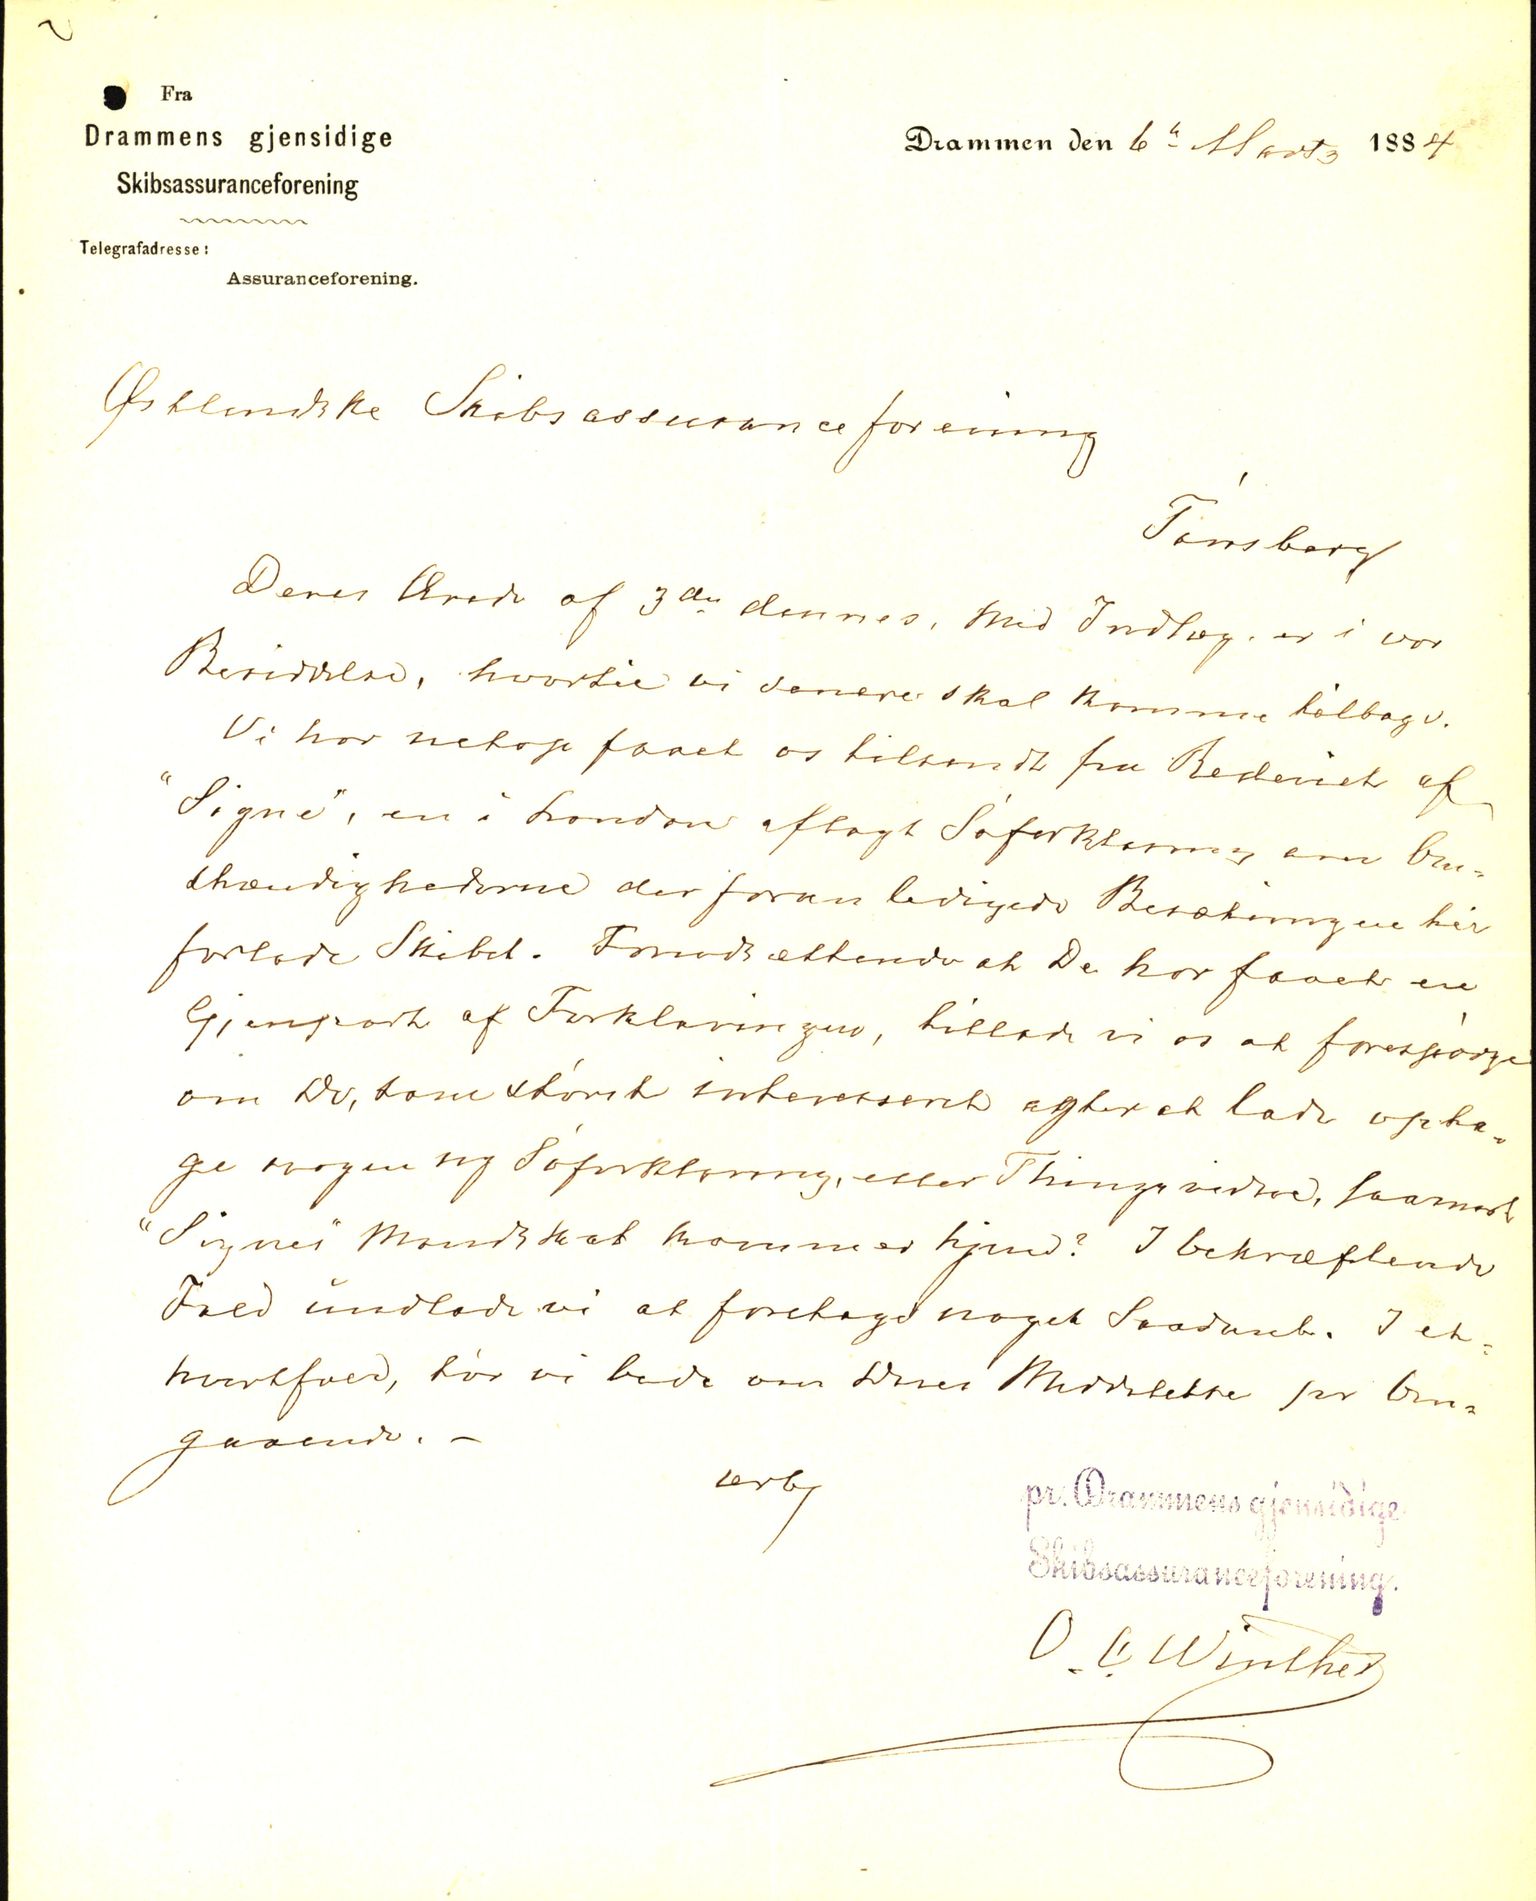 Fra
Drammens gjensidige
Skibsassuranceforening
Telegrafadresse:
Assuranceforening.
Drammen den 6te Marts 1884
Østlandske Skibsassuranceforening
Tønsberg
Deres Ærede af 3die dennes, med Indlæg. er i vor
Besiddelse, hvortil vi senere skal komme tilbage.
Vi har netop faaet os tilsendt fra Rederiet af
"Signe", en i London aflagt Søforklaring om Om-
stændighederne der foranledigede Besætningen til
forlade Skibet. Forudsættende at De har faaet en
Gjenpart af Forklaringen, tillade vi os at forespørge
om De, som størst interesseret agter at lade opta-
ge nogen ny Søforklaring, eller Thingsvidne, saasnart
"Signes" Mandskab kommer hjem? I bekræftende
Fald undlade vi at foretage noget Saadant. I et-
hvertfald, tør vi bede om Deres Meddelelse pr Om-
gaaende. –
ærb
pr. Drammens gjensidige
Skibsassuranceforening.
O. C. Winther